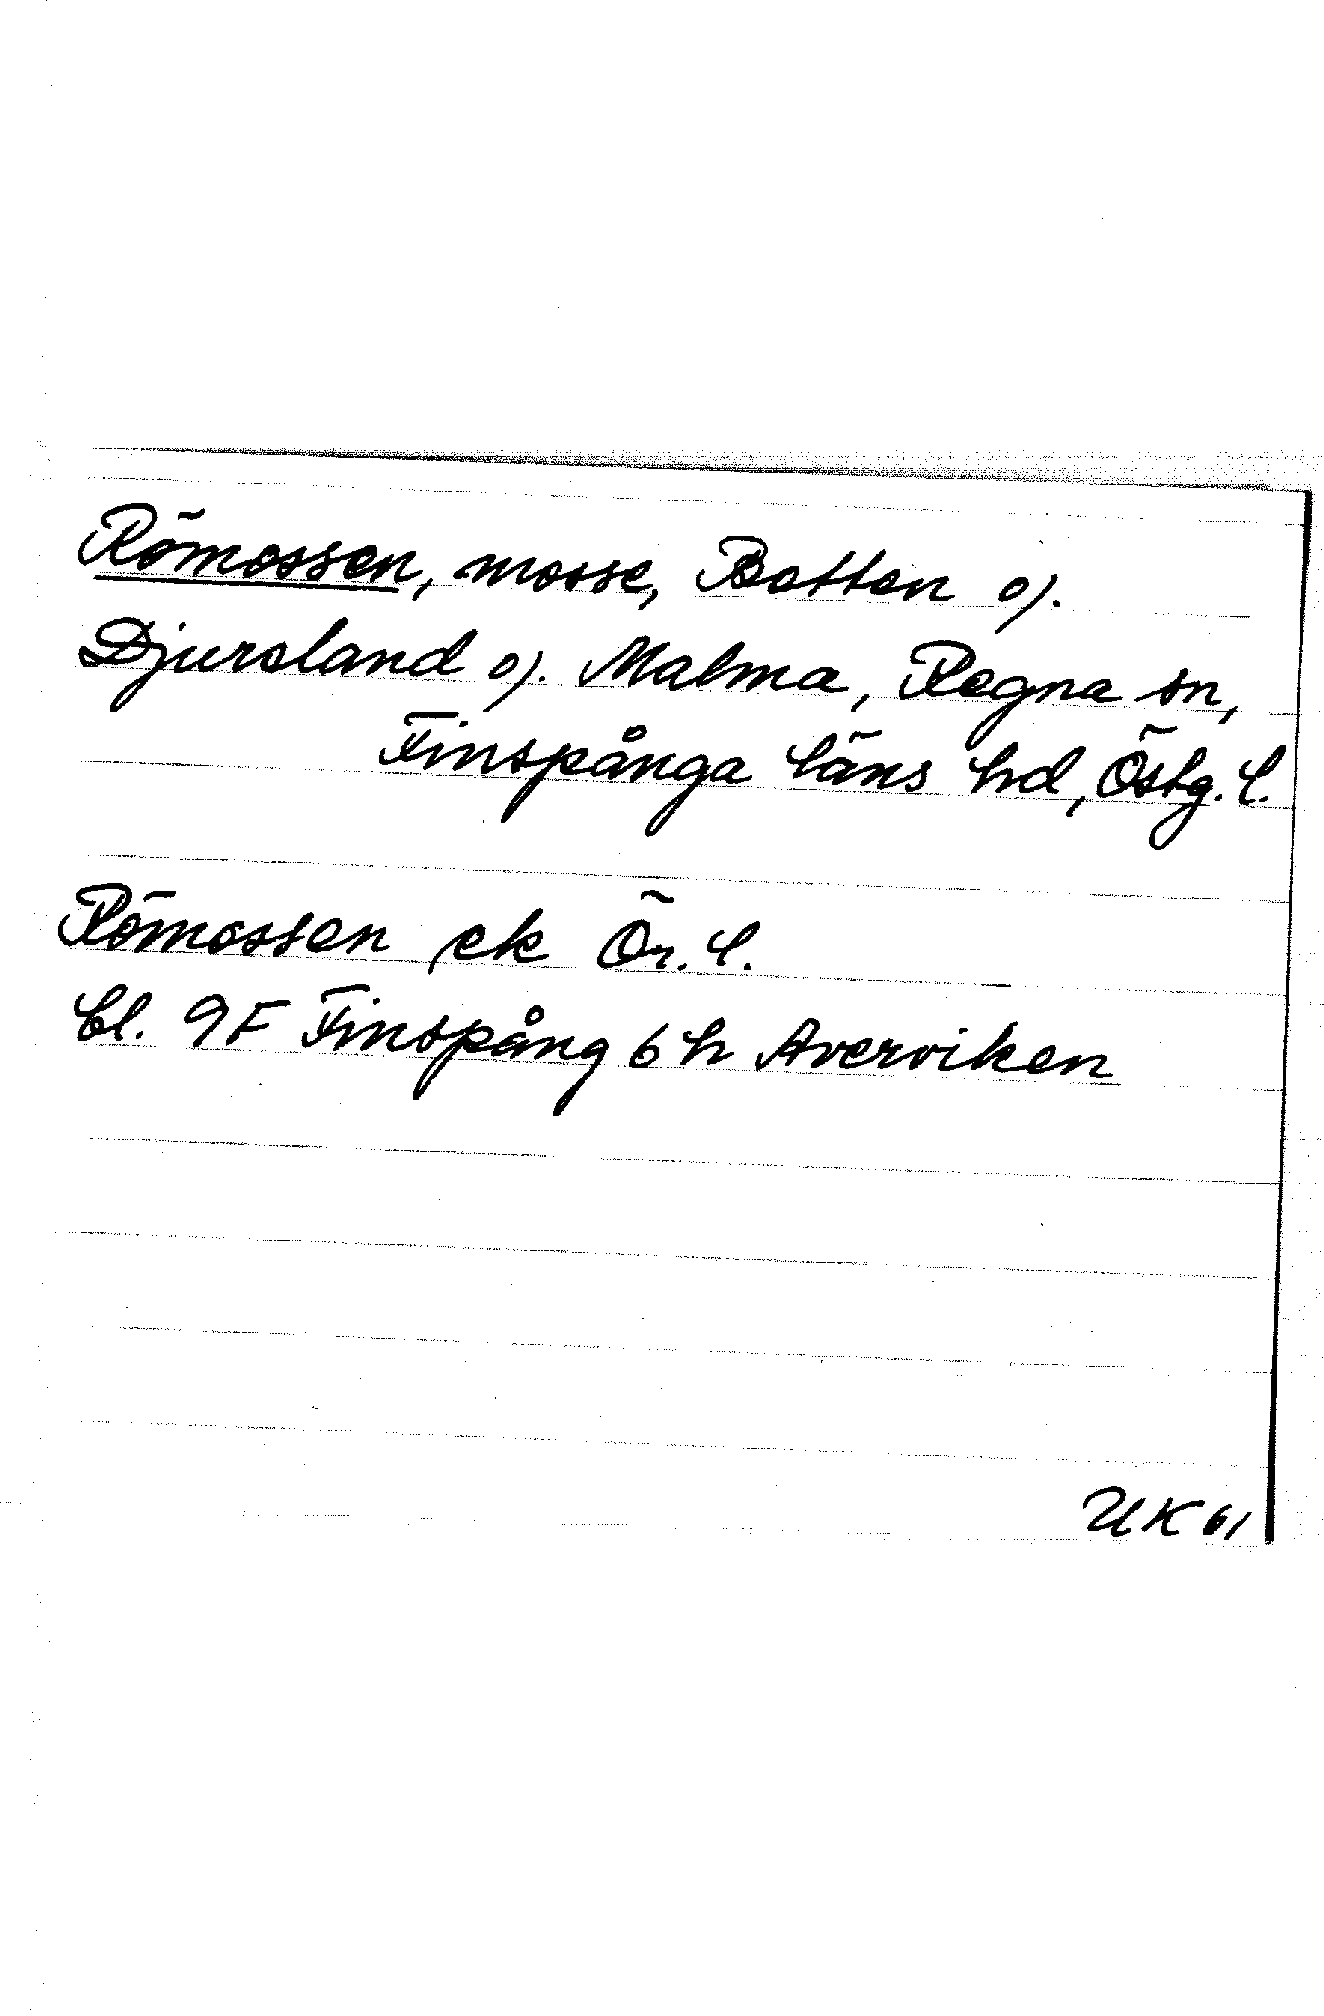 Römossen, mosse, Botten o).
Djursland o). Malma, Regna sn,
Finspånga läns hd, Östg. l.
Römossen ek Ör. l.
bl. 9F Finspång 6 h Averviken
UK 61